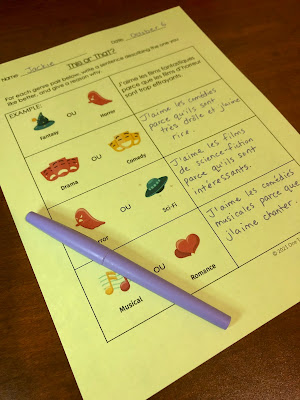 Name Jackie Date October 6
This or That?
For each genre pair below, write a sentence describing the one you
like better, and give a reason why.
EXAMPLE:
Fantasy OU Horror
J'aime les films fantastiques
parce que les films d'horreur
sont trop effrayants
Drama OU Comedy
J'aime les comédies
parce qu'ils sont
très drôle et j'aime
rire.
Horror OU Sci-Fi
J'aime les films
de science-fiction
parce qu'ils sont
intéressants.
Musical OU Romance
J'aime les comédies
musicales parce que
j'aime chanter.